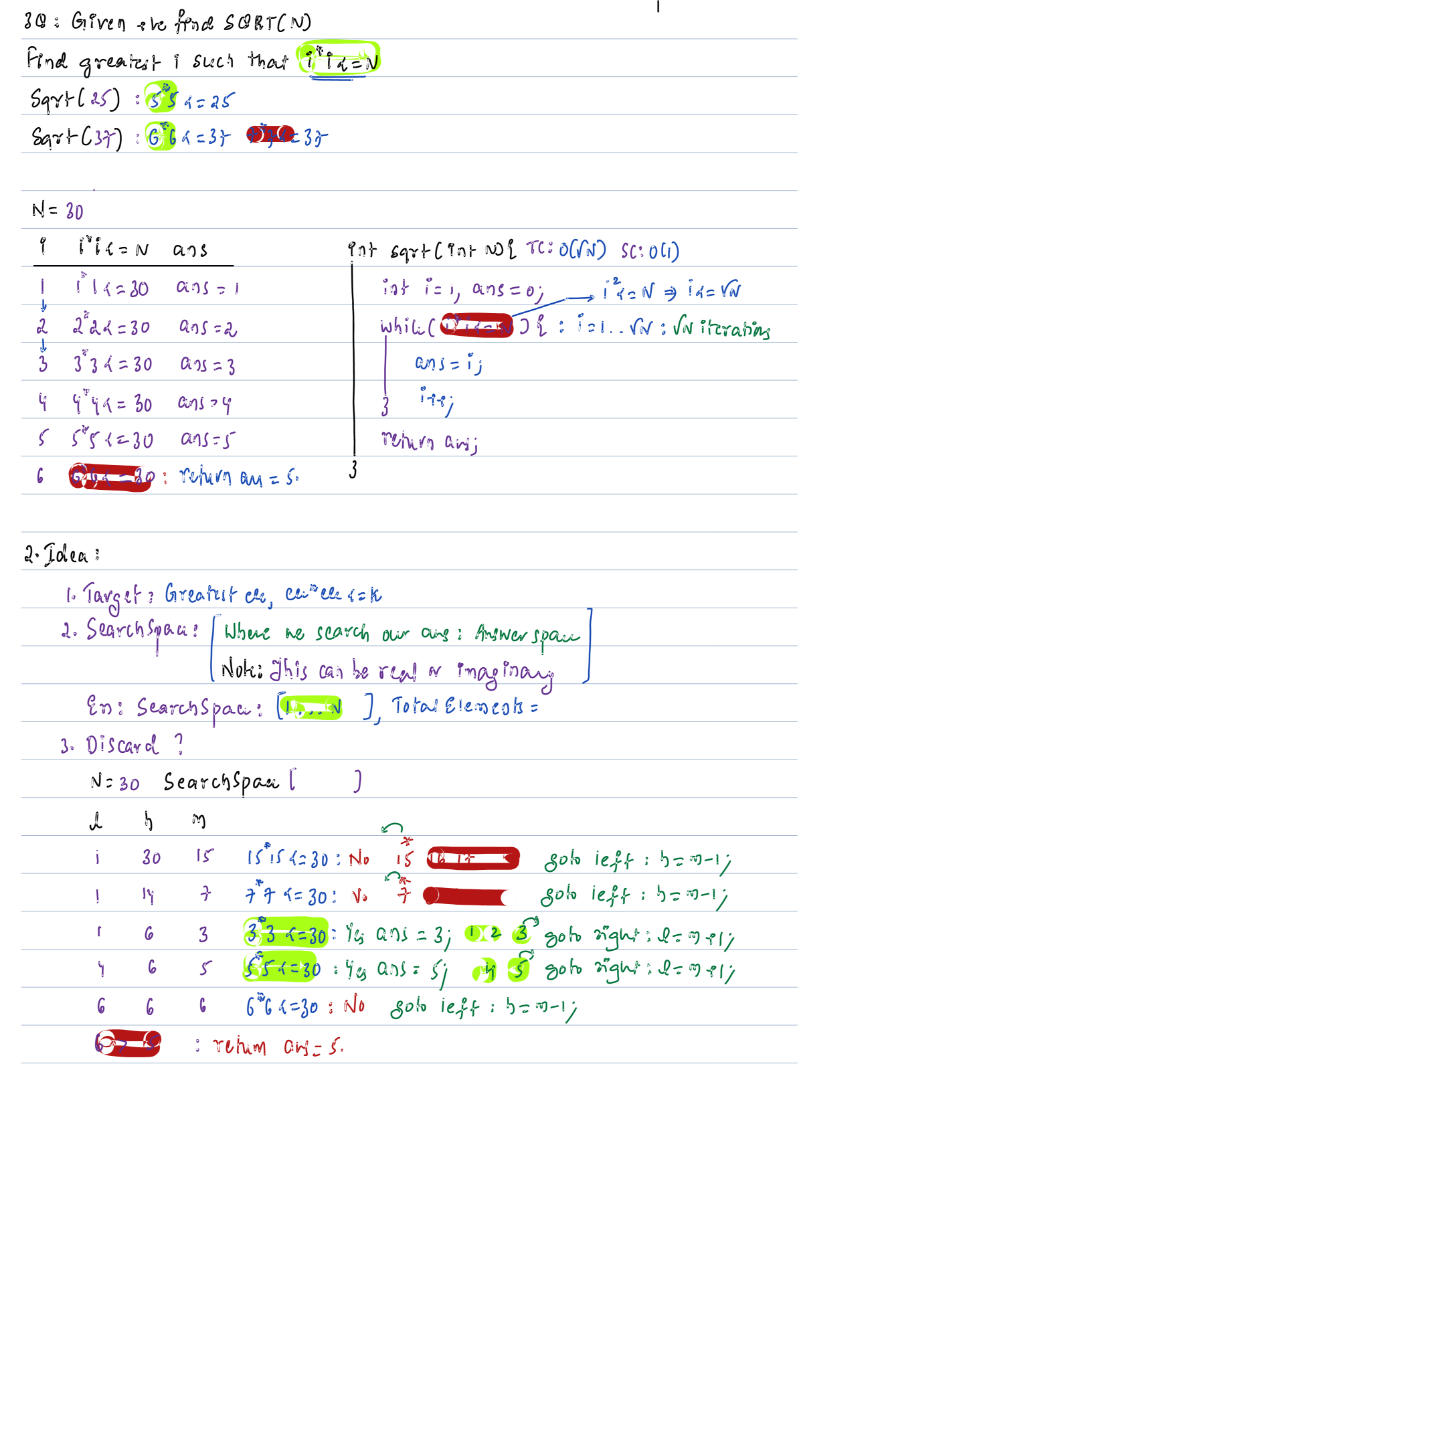 3Q: Given +ve find SQRT(N)
Find greatest i such that i*i<=N
Sqrt(25) : 5*5<=25
Sqrt(37) : 6*6<=37 <=37
N=30
i i*i<=N ans
1 1*1<=30 ans=1
2 2*2<=30 ans=2
3 3*3<=30 ans=3
4 4*4<=30 ans=4
5 5*5<=30 ans=5
6 6*6<=30 : return ans=5.
int sqrt(int N){ TC: O(√N) SC: O(1)
int i=1, ans=0; i²<=N ⇒ i<=√N
while(i*i<=N){ : i=1..√N : √N iterations
ans=i;
} i++;
return ans;
}
2. Idea:
1. Target: Greatest ele, ele*ele<=k
2. SearchSpace: [Where we search our ans: Answer space
Note: This can be real or imaginary]
Ex: SearchSpace: [1...N], Total Elements =
3. Discard ?
N=30 SearchSpace [ ]
l h m
1 30 15 15*15<=30: No 15 16 17 goto left : h=m-1;
1 14 7 7*7<=30: No 7 goto left : h=m-1;
1 6 3 3*3<=30: Yes ans=3; 1 2 3 goto right: l=m+1;
4 6 5 5*5<=30: Yes ans=5; 4 5 goto right: l=m+1;
6 6 6 6*6<=30: No goto left : h=m-1;
6 : return ans=5.